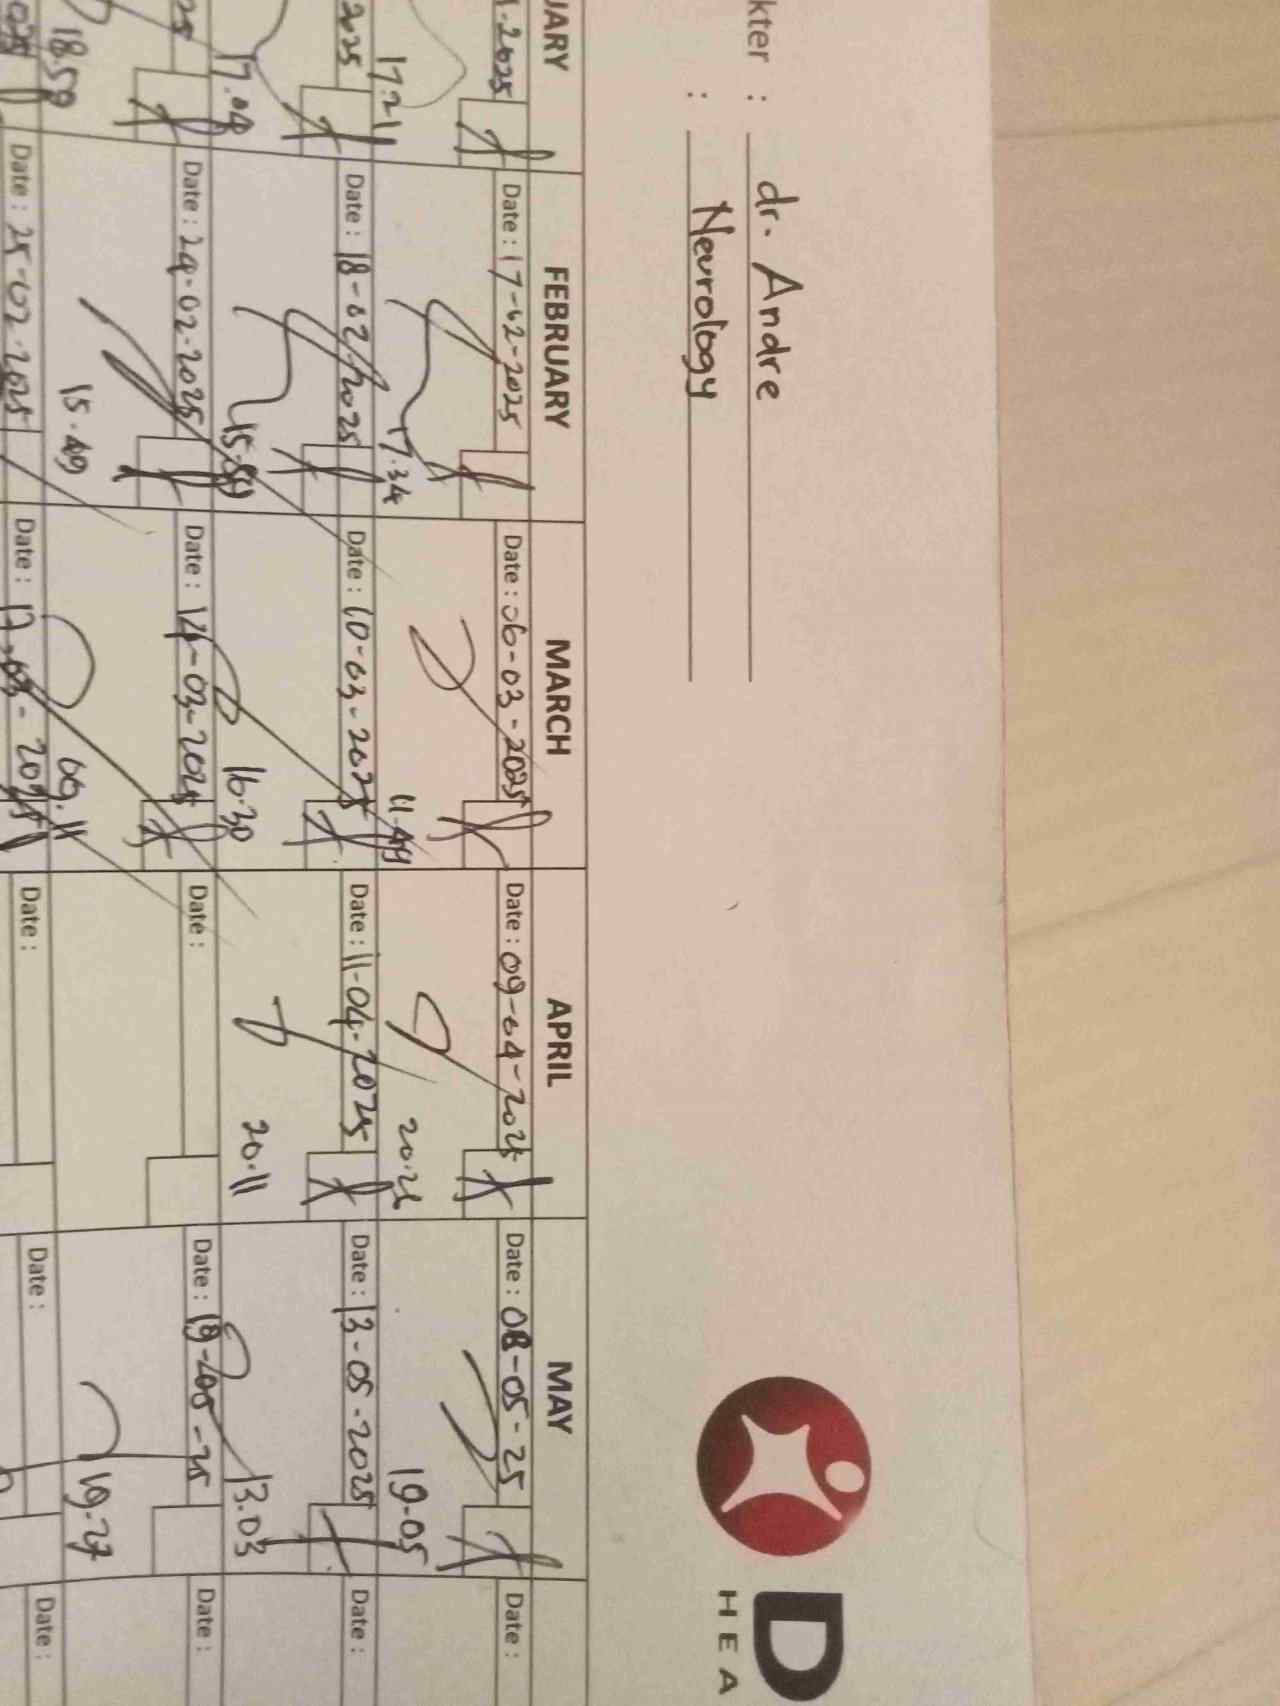 kter : dr. Andre
: Neurology
D
HEA
UARY FEBRUARY MARCH APRIL MAY
1.2025 Date : 17-02-2025 Date : 06-03-2025 Date : 09-04-2025 Date : 08-05-25 Date :
17.21 17.34 11.49 20.25 19.05
2025 Date : 18-02-2025 Date : 10-03-2025 Date : 11-04-2025 Date : 13-05-2025 Date :
17.04 16.30 20.11 13.03
25 Date : 24-02-2025 Date : 14-03-2025 Date : Date : 19-05-25 Date :
18.59 15.49 09.11 19.27
025 Date : 25-02-2025 Date : 17-03-2025 Date : Date : Date :